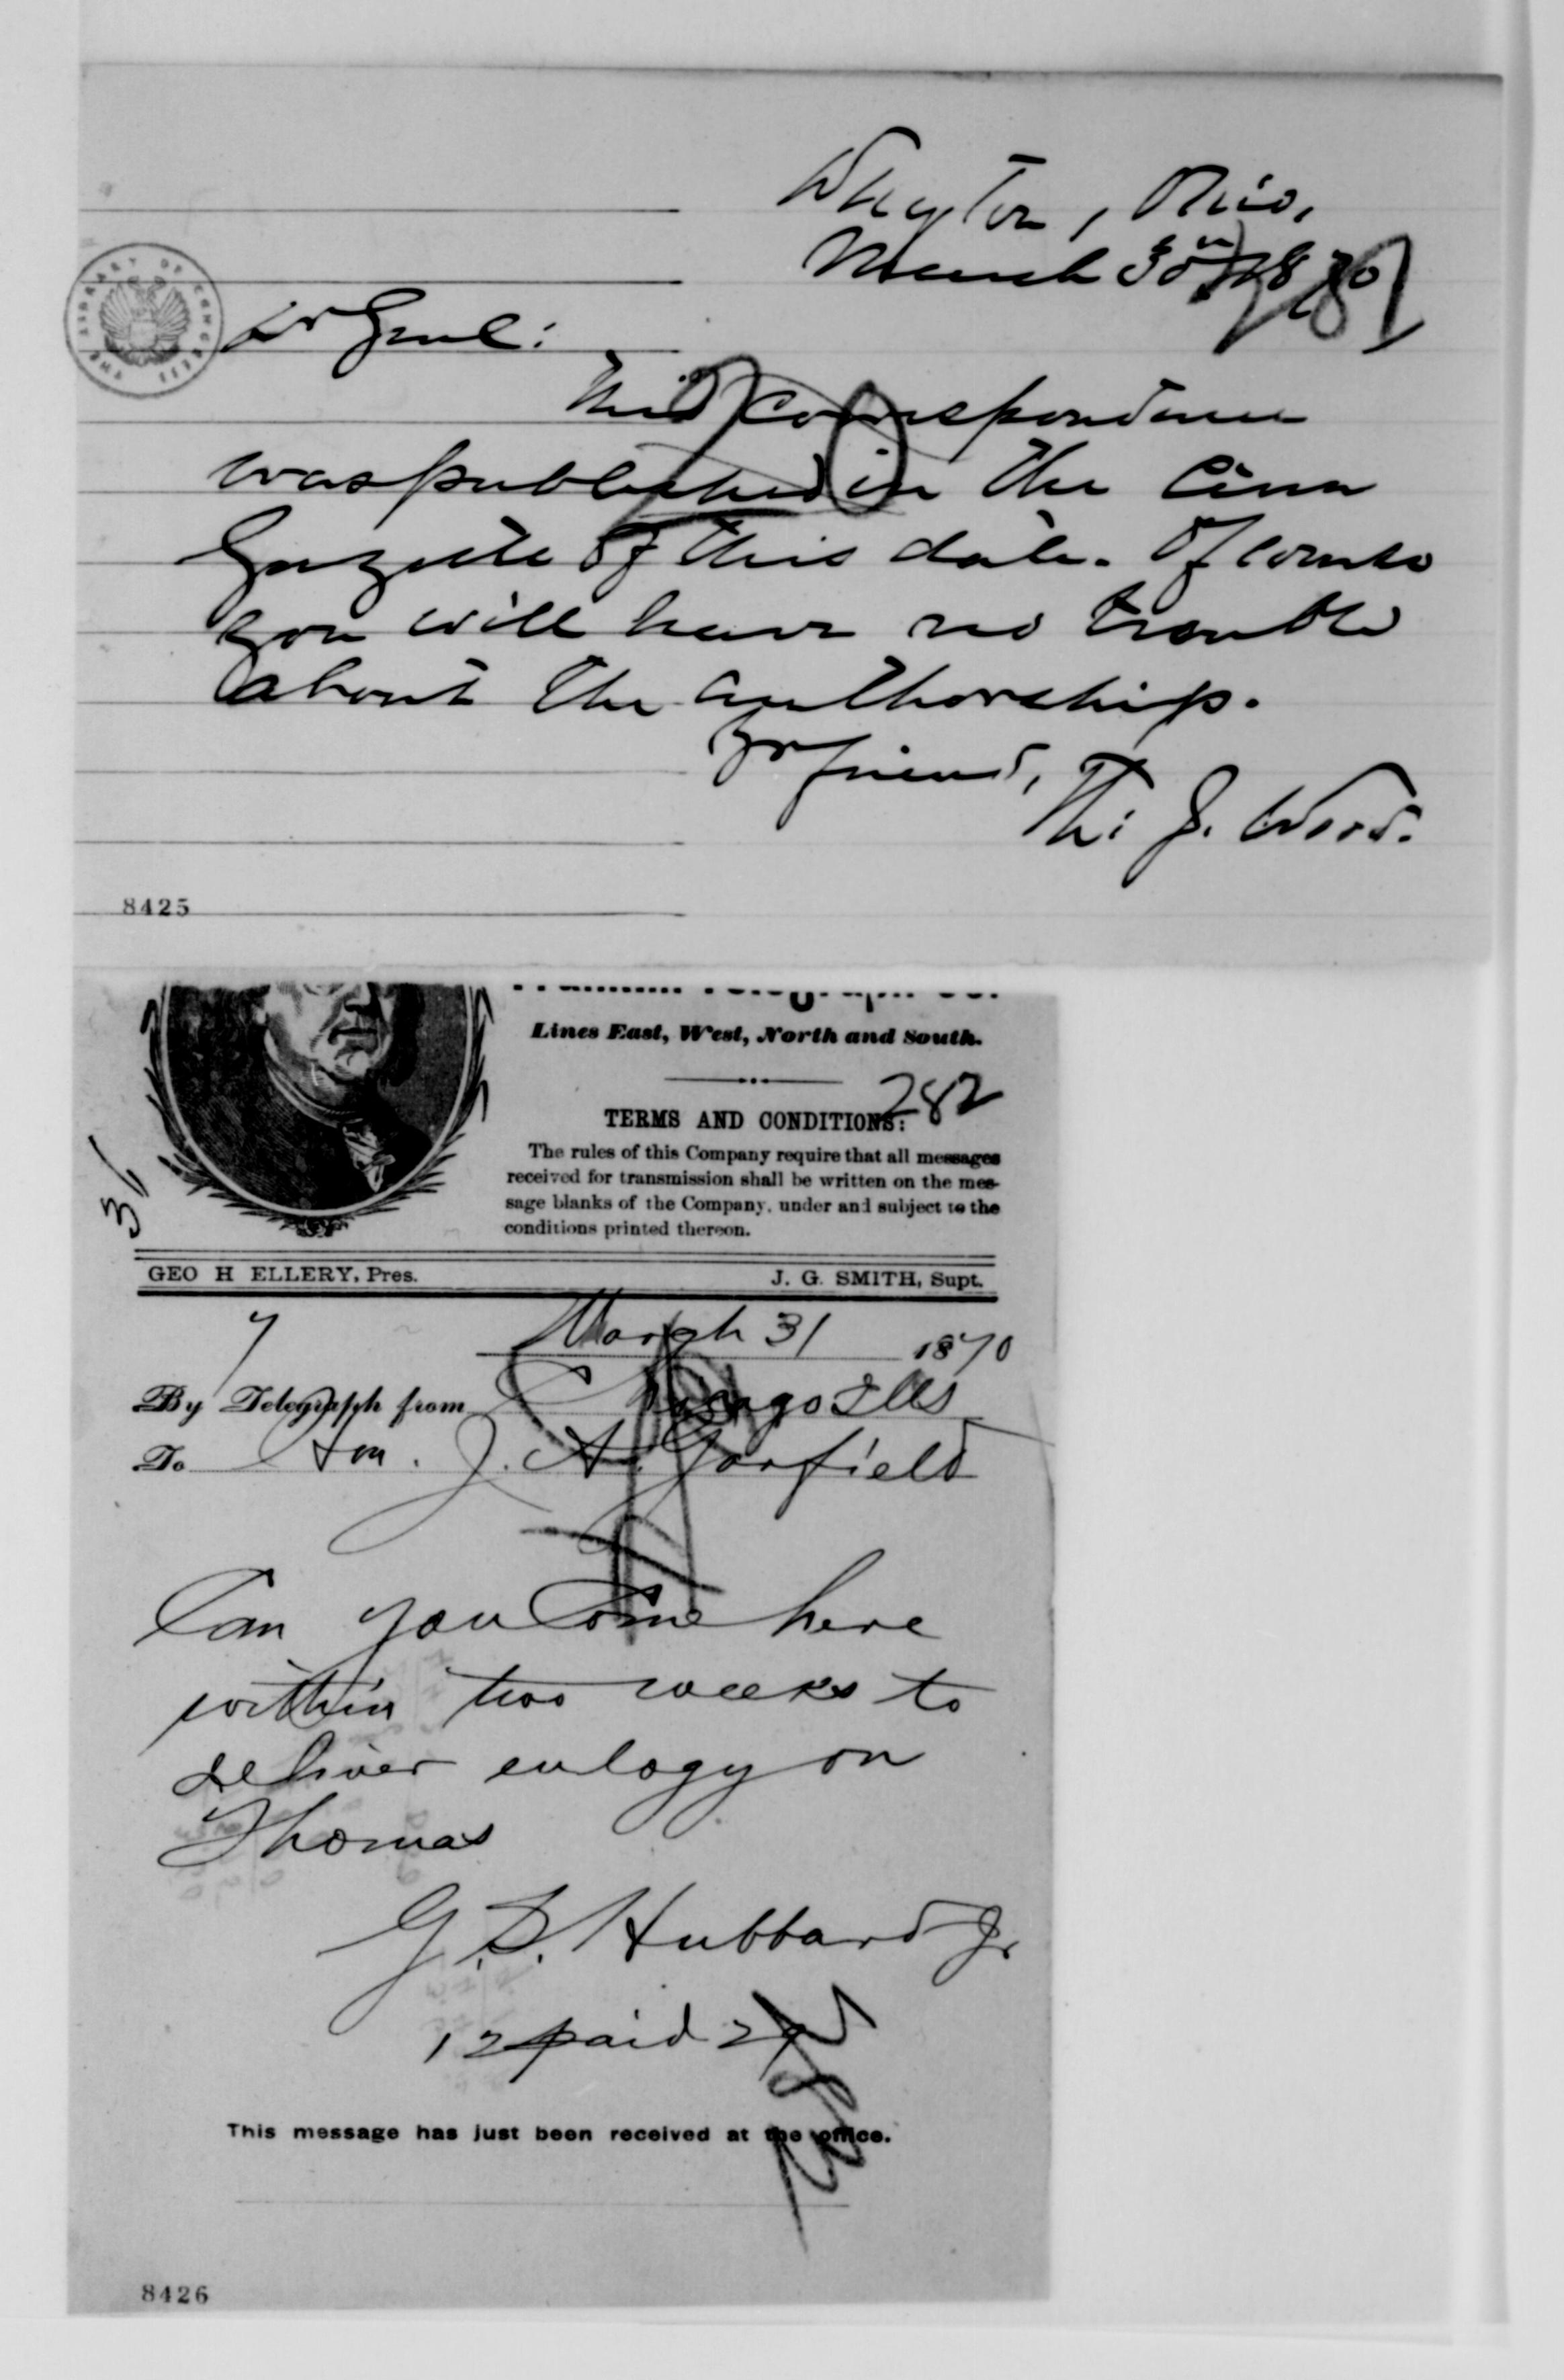 Dayton, Ohio,
March 30th 1870
281
THE LIBRARY OF CONGRESS
Dr Genl:
This correspondence
was published in the Cinn
Gazette of this date. Of course
you will have no trouble
about the authorship.
Yr friend,
Th: J. Wood.
8425
Franklin Telegraph Co.
Lines East, West, North and South.
282
TERMS AND CONDITIONS:
The rules of this Company require that all messages
received for transmission shall be written on the mes-
sage blanks of the Company, under and subject to the
conditions printed thereon.
GEO H ELLERY, Pres. J. G. SMITH, Supt.
7 March 31 1870
By Telegraph from Chicago Ills
To Hon. J. A. Garfield
Can you Come here
within two weeks to
deliver eulogy on
Thomas
G. S. Hubbard Jr
12 paid
This message has just been received at the office.
8426